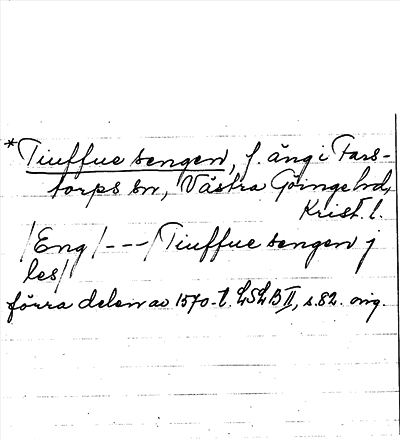 *Tiuffue sengen, f. äng i Fars-
torps sn, Västra Göinge hd,
Krist. l.
/Eng/---/Tiuffue sengen j
les/
förra delen av 1570-t. LSLB II, s. 82. orig.